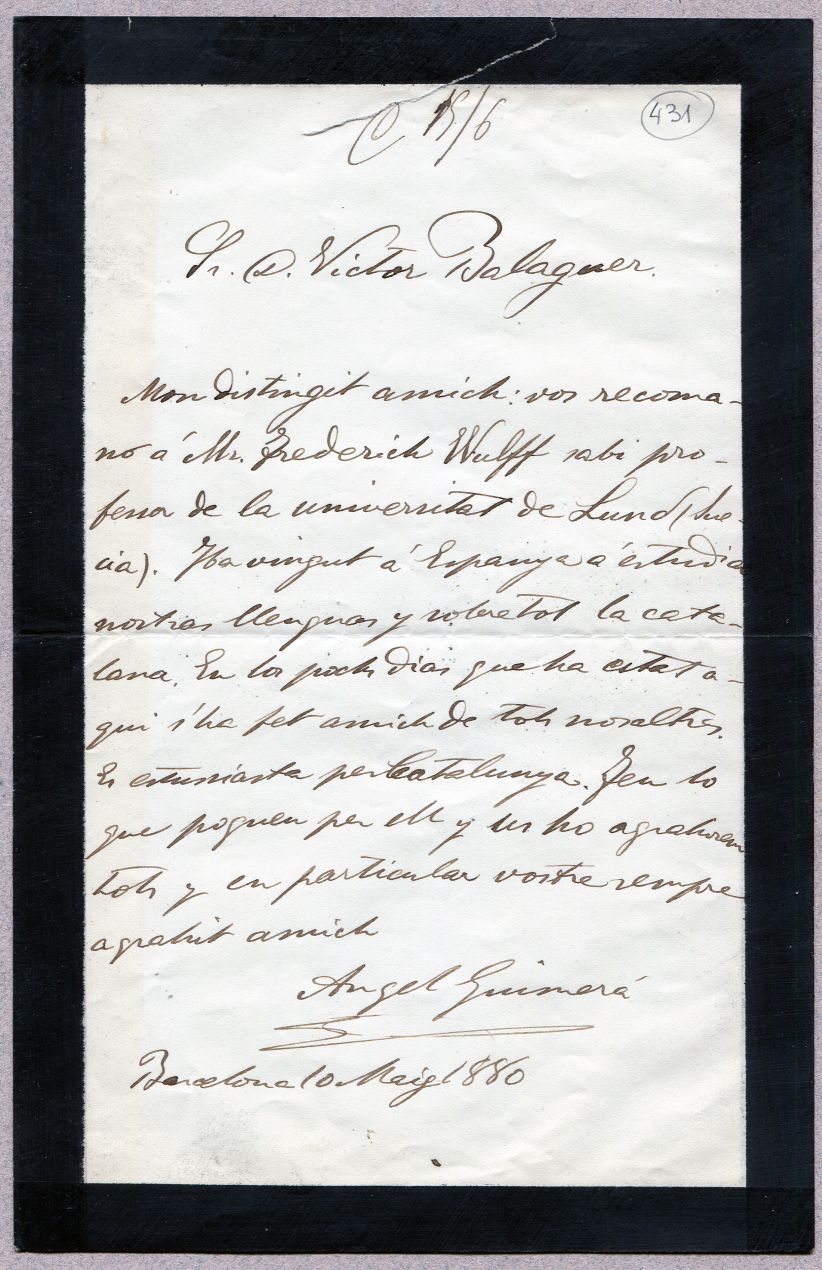 C 15/6
431
Sr. D. Victor Balaguer.
Mon distingit amich: vos recoma-
no á Mr. Frederich Wulff sabi pro-
fessor de la universitat de Lund (Sue-
cia). Ha vingut á Espanya á estudiar
nostras llenguas y sobre tot la cata-
lana. En los pochs dias que ha estat a-
qui s'ha fet amich de tots nosaltres.
Es entusiasta per Catalunya. Feu lo
que pogueu per ell y us ho agrahirem
tots y en particular vostre sempre
agrahit amich
Angel Guimerá
Barcelona 10 Maig 1880